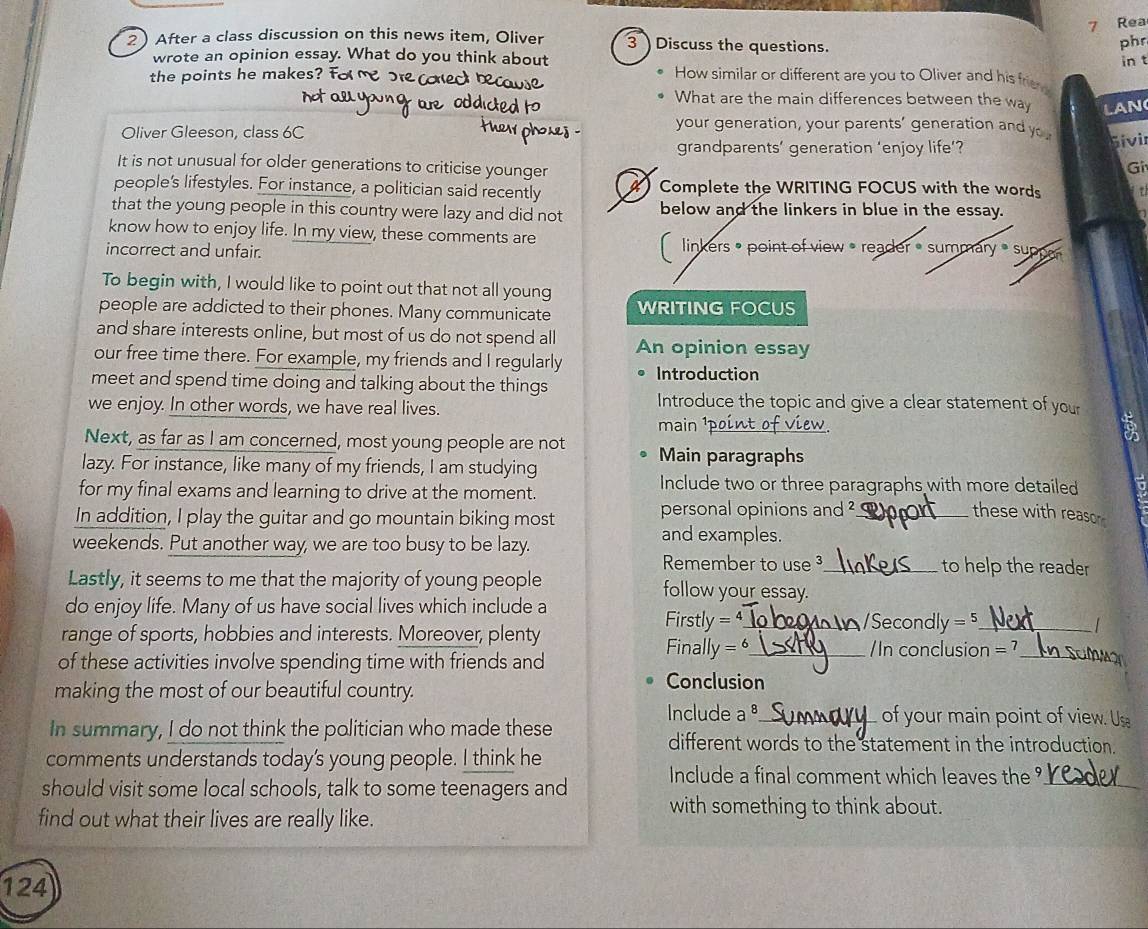 2 After a class discussion on this news item, Oliver
wrote an opinion essay. What do you think about
the points he makes? For me are correct because
not all young are addicted to
their phones -
Oliver Gleeson, class 6C
It is not unusual for older generations to criticise younger
people's lifestyles. For instance, a politician said recently
that the young people in this country were lazy and did not
know how to enjoy life. In my view, these comments are
incorrect and unfair.
To begin with, I would like to point out that not all young
people are addicted to their phones. Many communicate
and share interests online, but most of us do not spend all
our free time there. For example, my friends and I regularly
meet and spend time doing and talking about the things
we enjoy. In other words, we have real lives.
Next, as far as I am concerned, most young people are not
lazy. For instance, like many of my friends, I am studying
for my final exams and learning to drive at the moment.
In addition, I play the guitar and go mountain biking most
weekends. Put another way, we are too busy to be lazy.
Lastly, it seems to me that the majority of young people
do enjoy life. Many of us have social lives which include a
range of sports, hobbies and interests. Moreover, plenty
of these activities involve spending time with friends and
making the most of our beautiful country.
In summary, I do not think the politician who made these
comments understands today's young people. I think he
should visit some local schools, talk to some teenagers and
find out what their lives are really like.
124
3 Discuss the questions.
• How similar or different are you to Oliver and his frien
• What are the main differences between the way
your generation, your parents' generation and your
grandparents' generation 'enjoy life'?
4 Complete the WRITING FOCUS with the words
below and the linkers in blue in the essay.
linkers • point of view • reader • summary • support
WRITING FOCUS
An opinion essay
• Introduction
Introduce the topic and give a clear statement of your
main ¹point of view.
• Main paragraphs
Include two or three paragraphs with more detailed
personal opinions and ² support these with reasons
and examples.
Remember to use ³ linkers to help the reader
follow your essay.
Firstly = ⁴ To begin in /Secondly = ⁵ Next /
Finally = ⁶ Lastly /In conclusion = ⁷ In summar
• Conclusion
Include a ⁸ Summary of your main point of view. Use
different words to the statement in the introduction.
Include a final comment which leaves the ⁹ reader
with something to think about.
7 Rea
phr
in t
LANG
Givin
Gi
Soft